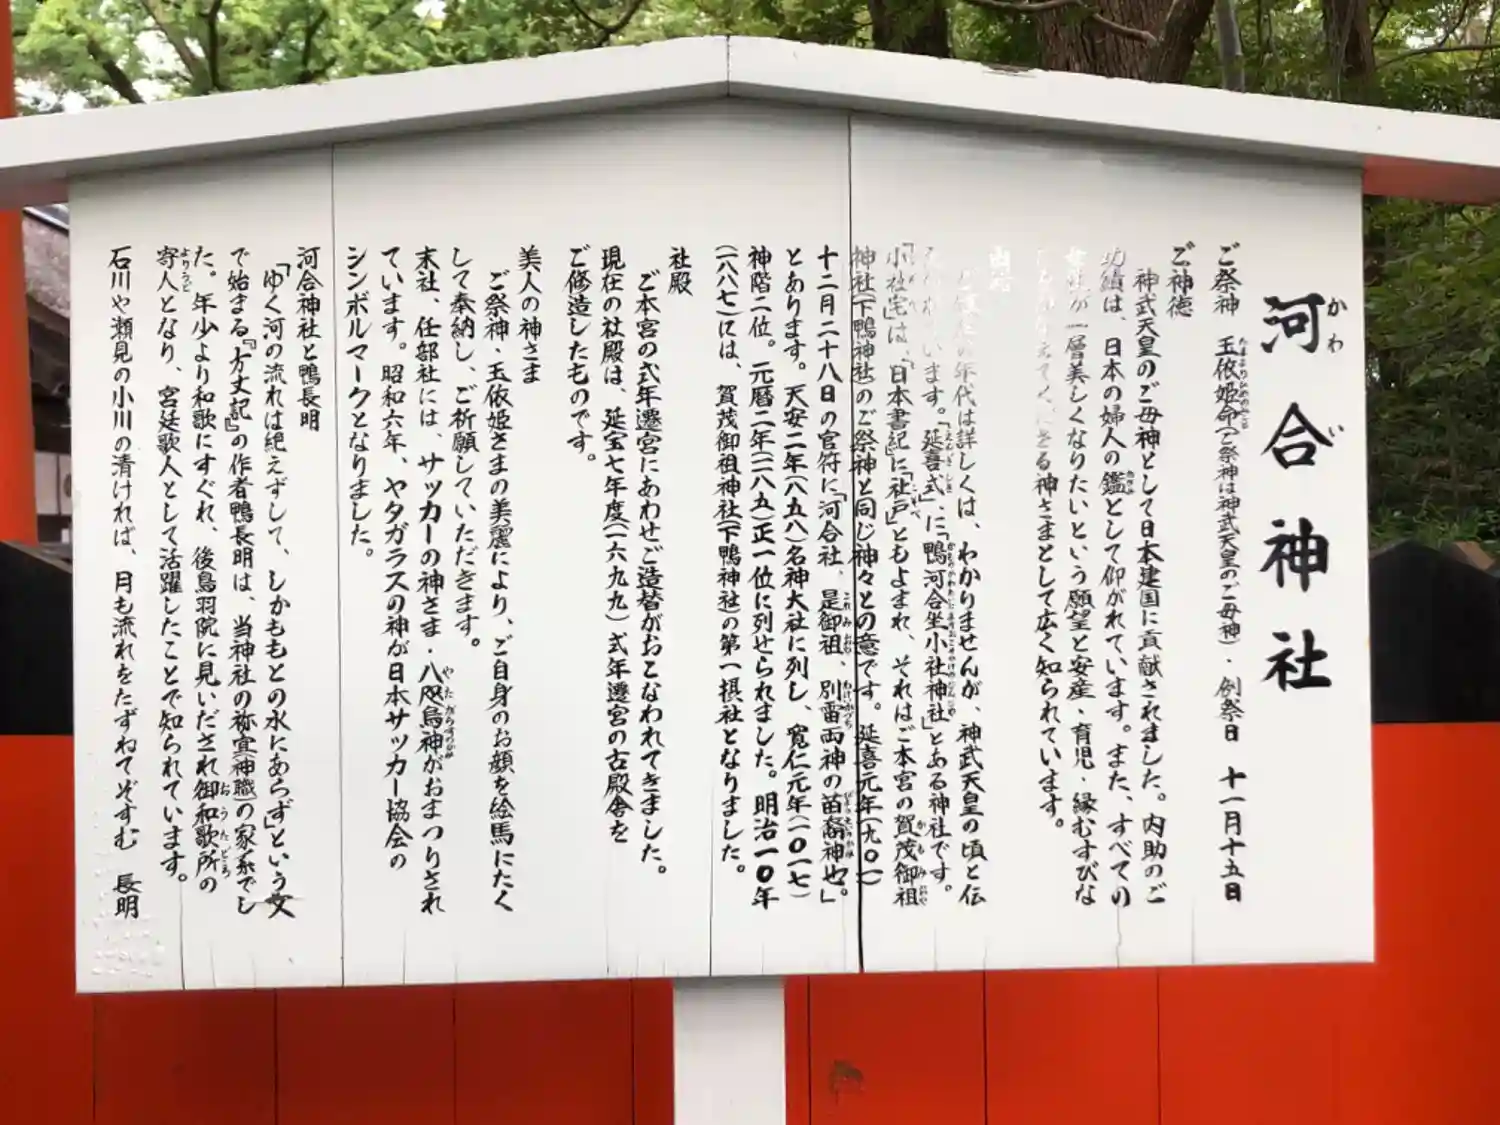 河合神社
かわ
じ
ご祭神　玉依姫命(ご祭神は神武天皇のご母神)・例祭日　十一月十五日
ご神徳
神武天皇のご母神として日本建国に貢献されました。内助のご
功績は、日本の婦人の鑑として仰がれています。また、すべての
女性が一層美しくなりたいという願望と安産・育児・縁むすびな
る神さまとして広く知られています。
由緒
の年代は詳しくは、わかりませんが、神武天皇の頃と伝
います。「延喜式」に「鴨河合坐小社宅神社」とある神社です。
「小社宅」は、「日本書紀」に「社戸」ともよまれ、それはご本宮の賀茂御祖
神社(下鴨神社)のご祭神と同じ神々との意です。延喜元年(九〇一)
十二月二十八日の官符に「河合社、是御祖、別雷両神の苗裔神也。」
とあります。天安二年(八五八)名神大社に列し、寛仁元年(一〇一七)
神階二位。元暦二年(一一八五)正一位に列せられました。明治一〇年
(一八八七)には、賀茂御祖神社(下鴨神社)の第一摂社となりました。
社殿
ご本宮の式年遷宮にあわせご造替がおこなわれてきました。
現在の社殿は、延宝七年度(一六九九)式年遷宮の古殿舎を
ご修造したものです。
美人の神さま
ご祭神・玉依姫さまの美麗により、ご自身のお顔を絵馬にたく
して奉納し、ご祈願していただきます。
末社、任部社には、サッカーの神さま・八咫烏神がおまつりされ
ています。昭和六年、ヤタガラスの神が日本サッカー協会の
シンボルマークとなりました。
河合神社と鴨長明
「ゆく河の流れは絶えずして、しかももとの水にあらず」という文
で始まる『方丈記』の作者鴨長明は、当神社の祢宜(神職)の家系でし
た。年少より和歌にすぐれ、後鳥羽院に見いだされ御和歌所の
寄人となり、宮廷歌人として活躍したことで知られています。
石川や瀬見の小川の清ければ、月も流れをたずねてぞすむ　長明